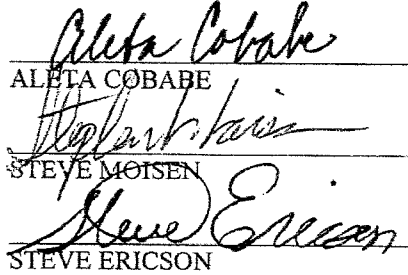 Aleta Cobabe
ALETA COBABE
STEVE MOISEN
Steve Ericson
STEVE ERICSON